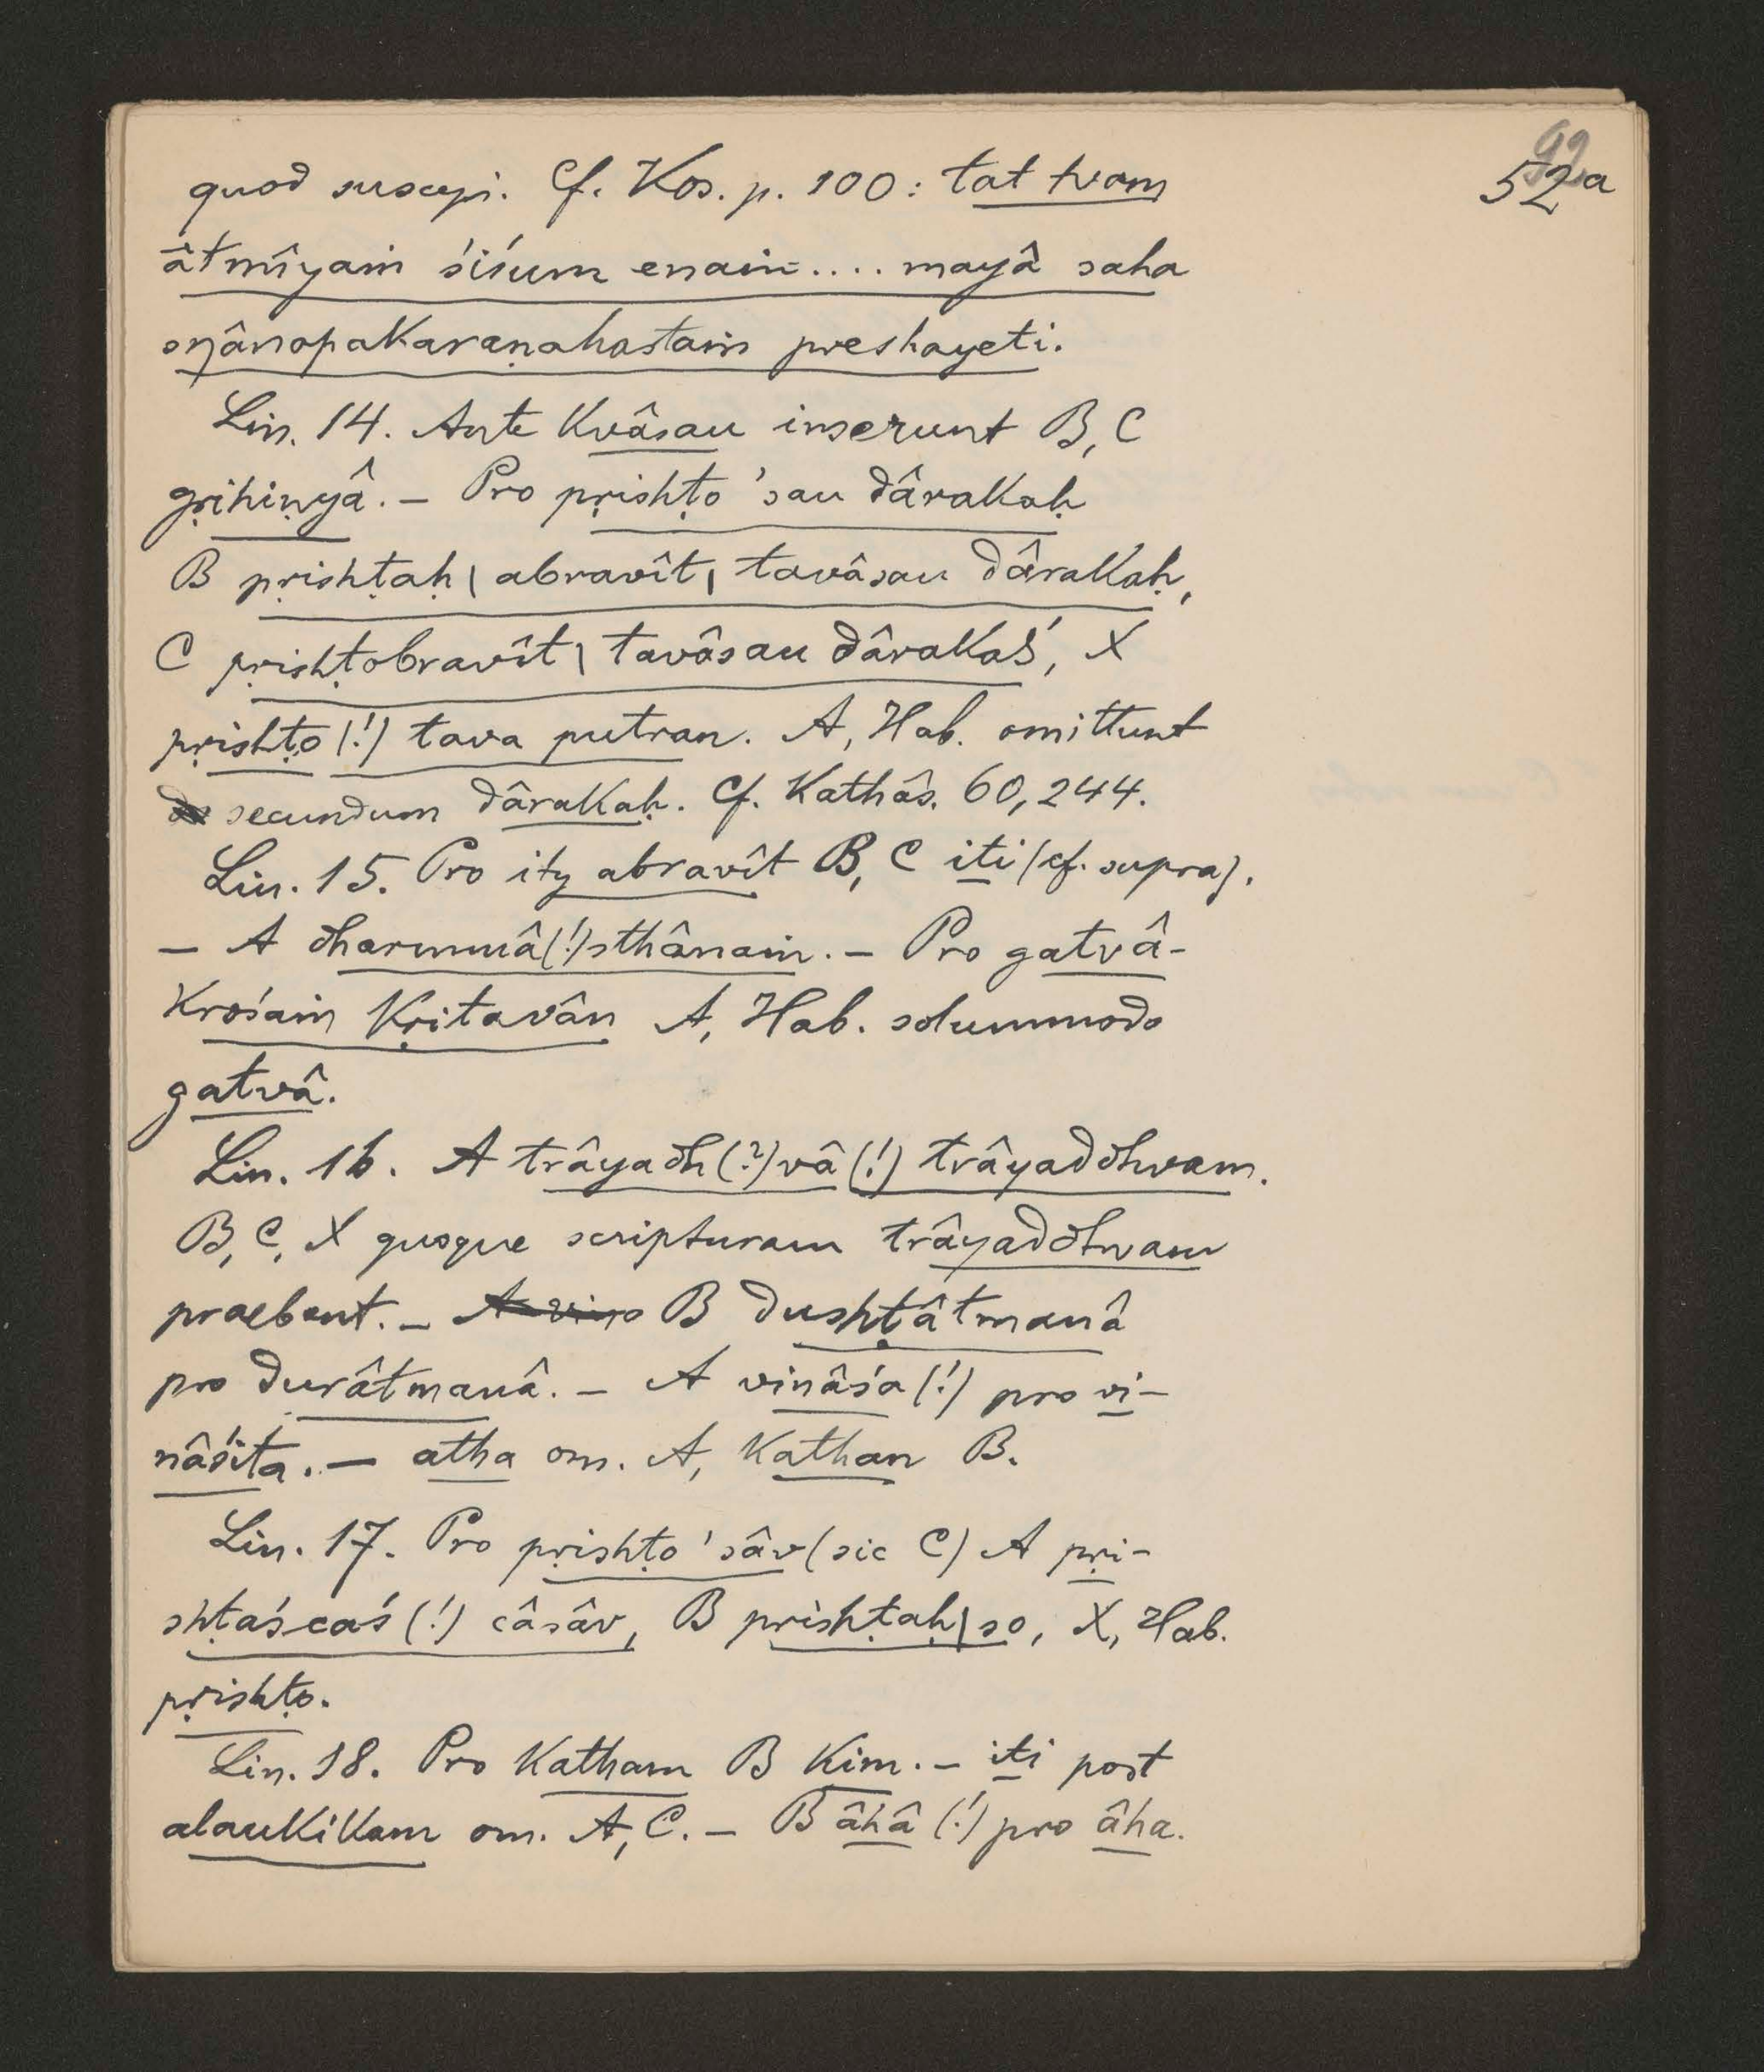 92
52a
quod suscepi. Cf. Kos. p. 100: tat tvam
âtmîyaṁ śiśum enaṁ.... mayâ saha
snânopakaraṇahastaṁ preshayeti.
Lin. 14. Ante kvâsau inserunt B, C
gṛihiṇyâ. – Pro pṛishṭo 'sau dârakaḥ
B pṛishṭaḥ | abravît | tavâsau dârakaḥ,
C pṛishṭobravît | tavâsau dârakaś, X
pṛishṭo (!) tava putran. A, Hab. omittunt
secundum dârakaḥ. Cf. Kathâs. 60, 244.
Lin. 15. Pro ity abravît B, C iti (cf. supra).
– A dharmmâ(!)sthânaṁ. – Pro gatvâ-
krośaṁ kṛitavân A, Hab. solummodo
gatvâ.
Lin. 16. A trâyadh(?)vâ(!) trâyaddhvam.
B, C, X quoque scripturam trâyaddhvam
praebent. – A vino B dushṭâtmanâ
pro durâtmanâ. – A vinâśa (!) pro vi-
nâśita. – atha om. A, kathan B.
Lin. 17. Pro pṛishṭo 'sâv (sic C) A pṛi-
shṭaścaś (!) câsâv, B pṛishṭaḥ | so, X, Hab.
pṛishṭo.
Lin. 18. Pro katham B kim. – iti post
alaukikam om. A, C. – B âhâ (!) pro âha.